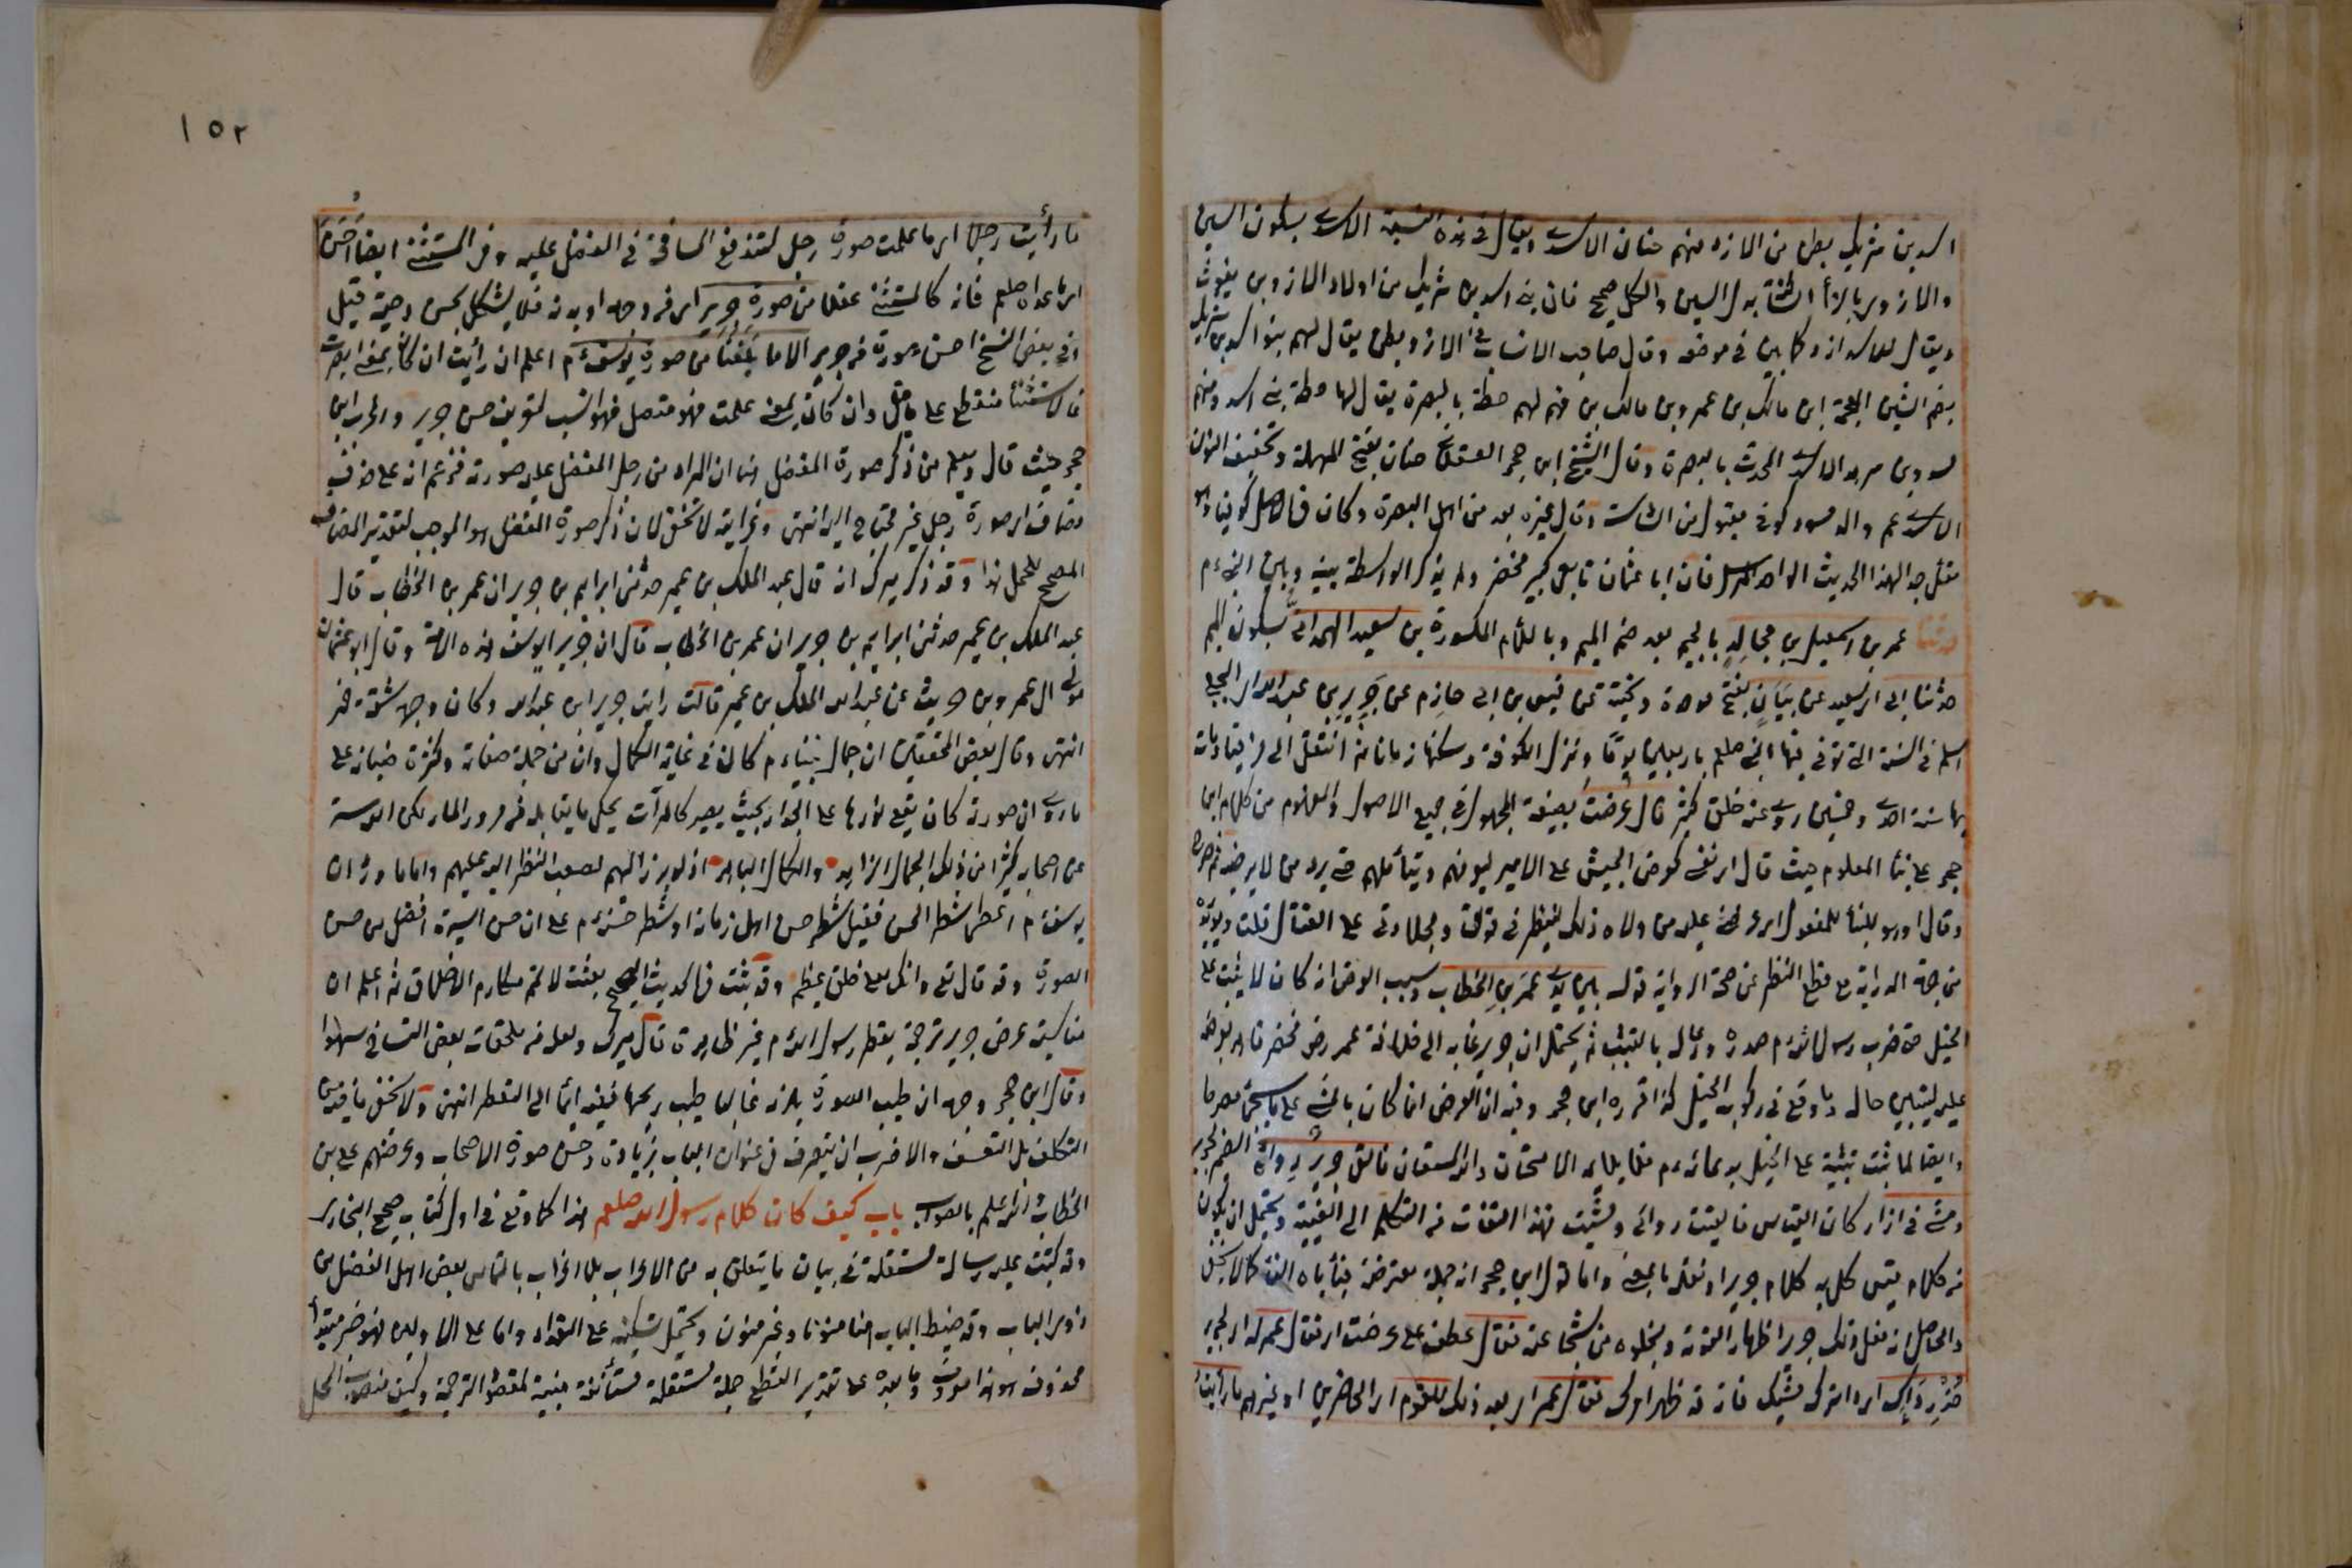 اسد بن شريك بطن من الازد منهم حنان الاسدي ويقال في هذه النسبة الاسدي بسكون السين
والازدي بالزاء الساكنة بدل السين والكل صحيح فان بني اسد بن شريك من اولاد الازد بن يغوث
ويقال للاسد ازد كما بين في موضعه وقال صاحب الانساب في الازد بطن يقال لهم بنو اسد بن شريك
بضم الشين المعجمة ابن مالك بن عمرو بن مالك بن فهم لهم خطة بالبصرة يقال لها خطة بني اسد ومنهم
مسدد بن مسرهد الاسدي المحدث بالبصرة وقال الشيخ ابن حجر العسقلاني حنان بفتح المهملة وتخفيف النون
الاسدي عم والد مسدد كوفي مقبول من السادسة وقال غيره يعد من اهل البصرة وكان في الاصل كوفيا وهو
مقل جدا لهذا الحديث الواحد المرسل فان ابا عثمان تابعي كبير مخضرم ولم يذكر الواسطة بينه وبين النبي ءم
حدثنا عمر بن اسمعيل بن مجالد بالجيم بعد ضم الميم وباللام المكسورة بن سعيد الهمداني بسكون الميم
حدثنا ابي اي سعيد عن بيان بفتح موحدة وتحتية عن قيس بن ابي حازم عن جرير بن عبد الله اي البجلي
اسلم في السنة التي توفي فيها النبي صلعم باربعين يوما ونزل الكوفة وسكنها زمانا ثم انتقل الى قرقيسا ومات
بها سنة احدى وخمسين روى عنه خلق كثير قال عرضت بصيغة المجهول في جميع الاصول والمفهوم من كلام ابن
حجر على بناء المعلوم حيث قال اي نفسي كعرض الجيش على الامير ليعرفهم ويتأملهم حتى يرد من لا يرضيه
وقال او هو بالبناء للمفعول اي عرضني عليه من ولاه ذلك لينظر في قوتي وجلادتي على القتال قلت ويؤيده
من جهة الدراية مع قطع النظر عن صحة الرواية قوله بين يدي عمر بن الخطاب وسبب العرض انه كان لا يثبت على
الخيل حتى ضرب رسول الله ءم صدره ودعا له بالتثبيت ثم يحتمل ان جرير غاب الى خلافة عمر رض فحضر فامر بعرضه
عليه ليتبين حاله وما وقع في ركوبه الخيل كذا قرره ابن حجر وفيه ان العرض انما كان بالمشي على ما سيجئ مصرحا
وايضا لما ثبت تثبته على الخيل بدعائه ءم فلا يلائمه الامتحان والله المستعان فالقى جرير رداءه
ومشى في ازار كان القياس فالقيت ردائي ومشيت فهذا التفات من التكلم الى الغيبة ويحتمل ان يكون
من كلام قيس كل به كلام جرير او نقله بالمعنى واما قول ابن حجر انه جملة معترضة فيأباه الفاء كما لا يخفى
والحاصل انه فعل ذلك جرير اظهارا لقوته وبخلوه من شجاعته فقال عطف على عرضت اي فقال عمر له اي لجرير
خذ رداءك اي واترك مشيك فانه قد ظهر امرك فقال عمر اي بعد ذلك للقوم اي الحاضرين او غيرهم ما رأيت
١٥٢
ما رأيت رجلا اي ما علمت صورة رجل لتندفع المسافة في الفضل عليه وفي المستثنى ايضا احسن
اي ما عداه صلعم فانه كالمستثنى عقلا من صورة جرير اي في وجهه او بدنه فلا يشكل بحسن دحية قيل
وفي بعض النسخ احسن صورة من جرير الا ما بلغنا من صورة يوسف ءم اعلم ان رأيت ان كان بمعنى ابصرت
فالاستثناء منقطع على ما قيل وان كان بمعنى علمت فهو متصل فهو انسب لتعريف حسن جرير واغرب ابن
حجر حيث قال ويعلم من ذكر صورة المفضل هنا ان المراد من رجل المفضل عليه صورته فزعم انه على حذف
مضاف اي صورة رجل غير محتاج اليه انتهى وغرابته لا تخفى لان ذكر صورة المفضل هو الموجب لتقدير المضاف
المصحح للحمل هذا وقد ذكر ميرك انه قال عبد الملك بن عمير حدثني ابراهيم بن جرير ان عمر بن الخطاب قال
عبد الملك بن عمير حدثني ابراهيم بن جرير ان عمر بن الخطاب قال ان جرير يوسف هذه الامة وقال ابو عثمان
مولى آل عمرو بن حريث عن عبد الملك بن عمير قال رايت جرير ابن عبد الله وكان وجهه شقة قمر
انتهى وقال بعض المحققين ان جمال نبينا ءم كان في غاية الكمال وان من جملة صفاته وكثرة ضيائه على
ما روي ان صورته كان يقع نورها على الجدار بحيث يصير كالمرآة يحكي ما يقابله من مرور المار لكن الله ستر
عن اصحابه كثيرا من ذلك الجمال الزاهر والكمال الباهر اذ لو برز اليهم لصعب النظر اليه عليهم واما ما ورد ان
يوسف ءم اعطي شطر الحسن فقيل شطر حسن اهل زمانه او شطر حسنه ءم على ان حسن السيرة افضل من حسن
الصورة وقد قال تعالى وانك لعلى خلق عظيم وقد ثبت في الحديث الصحيح بعثت لاتمم مكارم الاخلاق ثم اعلم ان
مناسبة عرض جرير ترجمة بعطر رسول الله ءم غير ظاهرة قال ميرك ولعله من ملحقات بعض النساخ سهوا
وقال ابن حجر وجهه ان طيب الصورة يلزمه غالبا طيب ريحها ففيه ايماء الى التعطر انتهى ولا يخفى ما فيه من
التكلف بل التعسف والاقرب ان يتصرف في عنوان الباب بزيادة وحسن صورة الاصحاب وعرضهم على بن
الخطاب والله اعلم بالصواب باب كيف كان كلام رسول الله صلعم هذا كما وقع في اول كتاب صحيح البخاري
وقد كتبت عليه رسالة مستقلة في بيان ما يتعلق به من الاعراب بلا اغراب بالتماس بعض اهل الفضل من
ذوي الباب وقد ضبط الباب هنا منونا وغير منون ويحتمل تسكينه على التعداد واما على الاولين فهو خبر مبتدأ
محذوف هو هذا وما بعده على تقدير القطع جملة مستقلة مستأنفة مبينة لمقصود الترجمة وكيف منصوب المحل